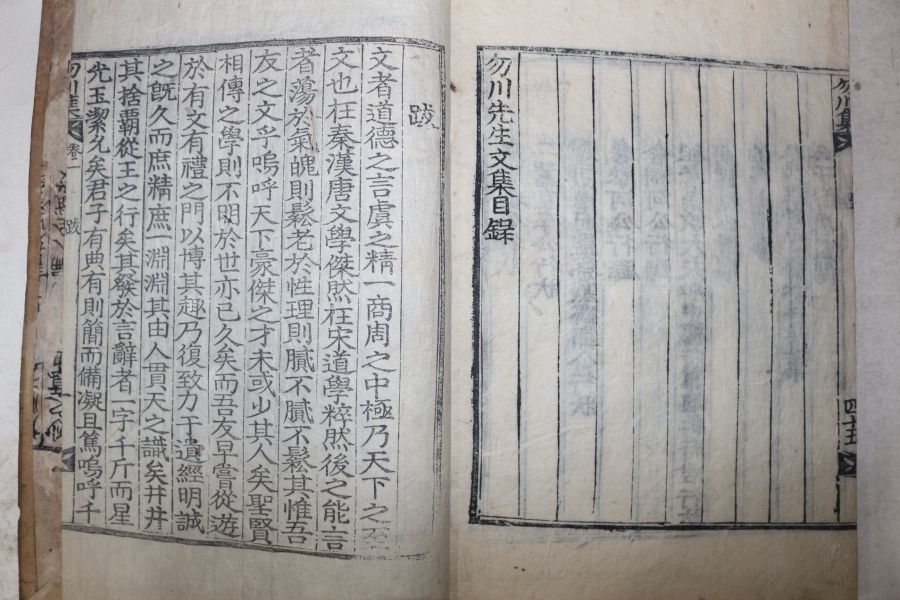 勿川集
勿川先生文集目錄
跋
文者道德之言虞之精一商周之中極乃天下之至
文也在秦漢唐文學傑然在宋道學粹然後之能言
者蕩於氣魄則鬆老於性理則膩不膩不鬆其惟吾
友之文乎嗚呼天下豪傑之才未或少其人矣聖賢
相傳之學則不明於世亦已久矣而吾友早嘗從遊
於有文有禮之門以博其趣乃復致力于遺經明誠
之旣久而庶精庶一淵淵其由人貫天之識矣井井
其捨霸從王之行矣其發於言辭者一字千斤而星
光玉潔允矣君子有典有則簡而備凝且篤嗚呼千
勿川集 卷一 跋